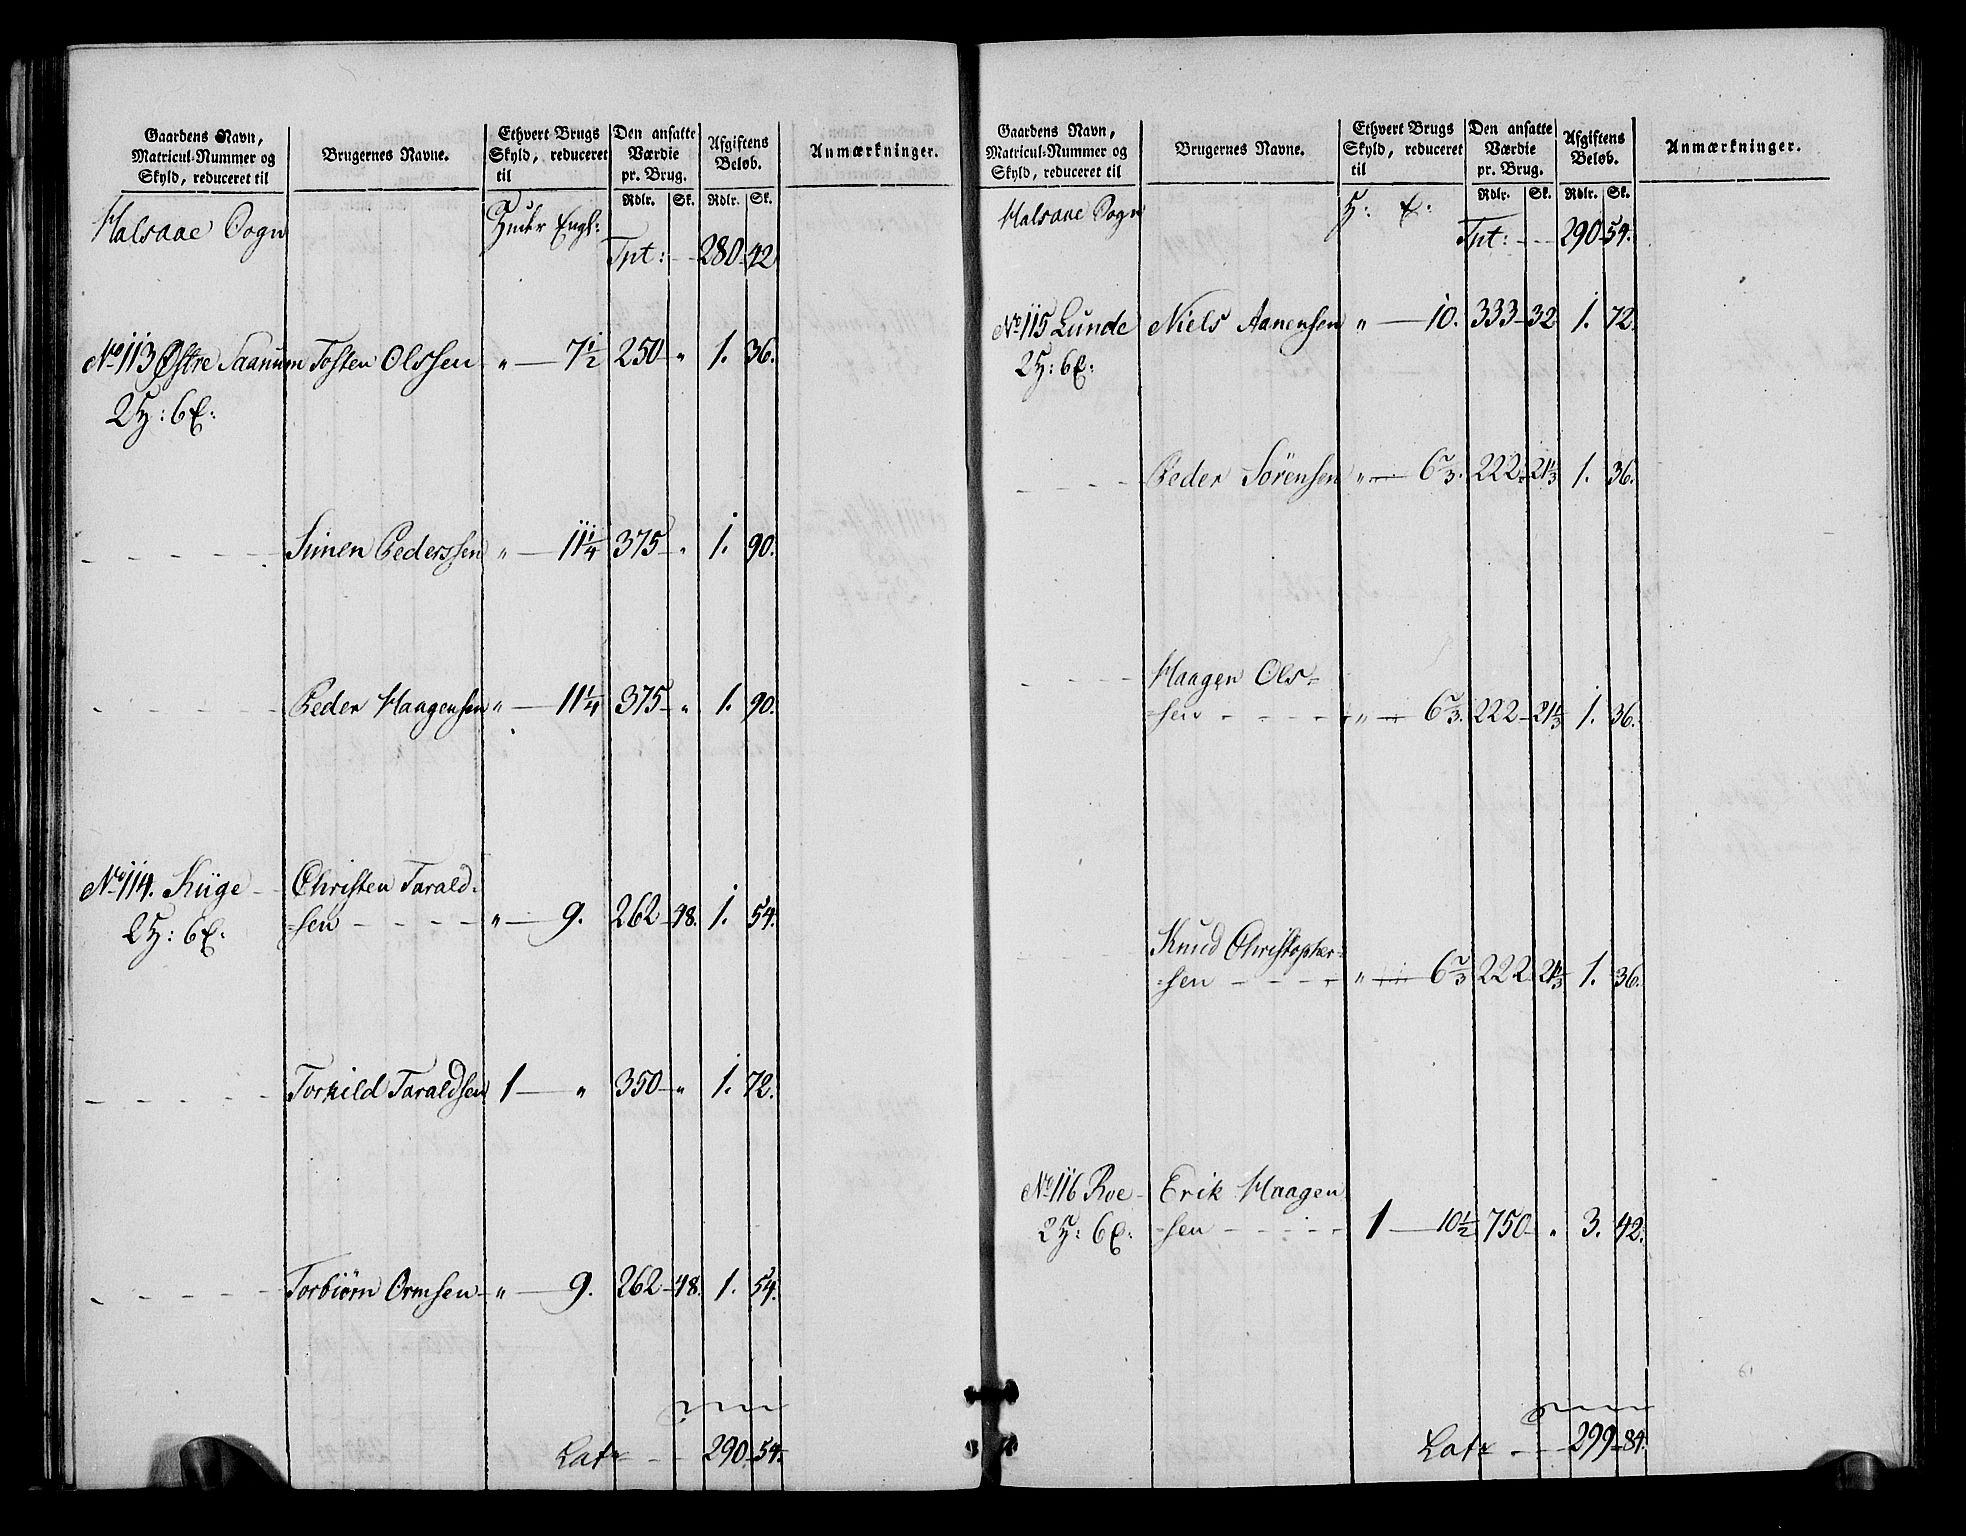 Gaardens Navn, Matricul-Nummer og Skyld, reduceret til | Brugernes Navne. | Ethvert Brugs Skyld, reduceret til | Den ansatte Værdie pr. Brug. | Afgiftens Beløb. | Anmærkninger.
Rdlr. | Sk. | Rdlr. | Sk.
Halsaae Sogn | Huder Engl:
Tpt: - - 280 - 42
No 113 Østre Saanum | Tosten Olssen | " — 7 1/2 | 250 - " | 1. 36.
2 H: 6 E:
- - - - - | Simen Pederssen | " — 11 1/4 | 375 - " | 1. 90.
- - - - - | Peder Haagensen | " — 11 1/4 | 375 - " | 1. 90.
No 114. Kige - | Christen Tarald-
2 H: 6 E: | -sen - - - - | " — 9. | 262 - 48. | 1. 54.
- - - - - | Torkild Taraldsen | 1 — " | 350 - " | 1. 72.
- - - - - | Torbiörn Ormsen | " — 9. | 262 - 48. | 1. 54.
Lats - - 290. 54.
Gaardens Navn, Matricul-Nummer og Skyld, reduceret til | Brugernes Navne. | Ethvert Brugs Skyld, reduceret til | Den ansatte Værdie pr. Brug. | Afgiftens Beløb. | Anmærkninger.
Rdlr. | Sk. | Rdlr. | Sk.
Halsaae Sogn | H: E:
Tpt: - - - 290 - 54.
No 115 Lunde | Niels Aanensen | " — 10. | 333 - 32 | 1. 72.
2 H: 6 E:
- - - - | Peder Sörensen | " — 6 2/3. | 222. 21 1/3 | 1. 36.
- - - - | Haagen Ols-
-sen - - - - | " — 6 2/3. | 222 - 21 1/3 | 1. 36.
Knud Christopher-
-sen - - - - | " — 6 2/3 | 222 21 1/3 | 1. 36.
No 116 Roe - | Erik Haagen
2 H: 6 E: | -sen - - - - | 1 — 10 1/2 | 750 - " | 3. 42.
61
Lats - - - 299 - 84.